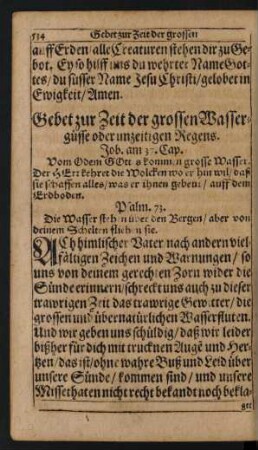 534 Gebet zur Zeit der grossen
auff Erden / alle Creaturen stehen dir zu Ge-
bot. Ey so hilff uns du wehrter Name Got-
tes / du süsser Name Jesu Christi / gelobet in
Ewigkeit / Amen.
Gebet zur Zeit der grossen Wasser-
güsse oder unzeitigen Regens.
Job. am 37. Cap.
Vom Odem GOttes kommen grosse Wasser.
Der HErr kehret die Wolcken wo er hin wil / daß
sie schaffen alles / was er ihnen gebeut / auff dem
Erdboden.
Psalm. 73.
Die Wasser stehen über den Bergen / aber von
deinem Schelten fliehen sie.
ACh himlischer Vater nach andern viel-
fältigen Zeichen und Warnungen / so
uns von deinem gerechten Zorn wider die
Sünde erinnern / schreckt uns auch zu dieser
trawrigen Zeit das trawrige Gewitter / die
grossen und übernatürlichen Wasserfluten.
Und wir geben uns schüldig / daß wir leider
bißher für dich mit trucknen Augē und Her-
tzen / das ist / ohne wahre Buß und Leid über
unsere Sünde / kommen sind / und unsere
Missethaten nicht recht bekandt noch bekla-
get